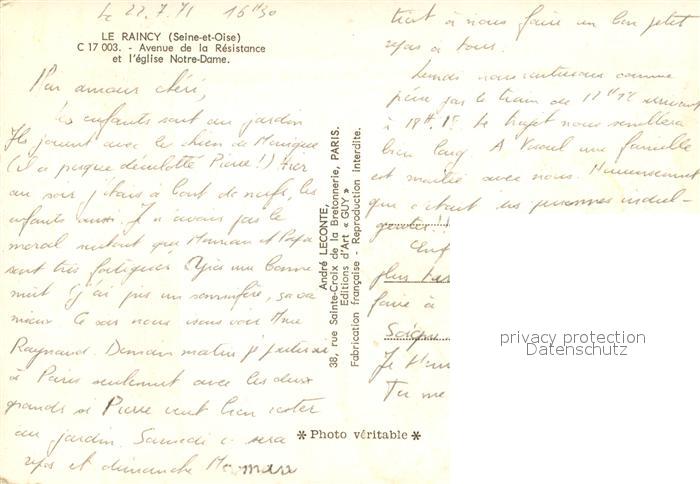 Le 22.7.71 16H30
LE RAINCY (Seine-et-Oise)
C 17 003. - Avenue de la Résistance
et l'église Notre-Dame.
Mon amour chéri,
Les enfants sont au jardin
Ils jouent avec le chien de Monique
(il a presque déculotté Pierre !) Hier
au soir j'étais à bout de nerfs, les
enfants aussi. Je n'avais pas le
moral surtout que Maman et Papa
sont très fatigués. Après une bonne
nuit (j'ai pris un somnifère) ça va
mieux. Ce soir nous irons voir Mme
Raynaud. Demain matin j'
à Paris seulement avec les deux
grands si Pierre veut bien rester
au jardin. Samedi ce sera
repos et dimanche Maman
André LECONTE,
38, rue Sainte-Croix de la Bretonnerie, PARIS.
Editions d'Art « GUY »
Fabrication française - Reproduction interdite.
* Photo véritable *
tient à nous faire un bon petit
repas à tous.
Lundi nous rentrerons comme
prévu par le train de
à 18H. Le trajet nous semblera
bien long. A Vesoul une famille
est montée avec nous. Heureusement
que c'était des personnes
Enf
plus tar
faire à
Je t'em
Tu me
privacy protection
Datenschutz